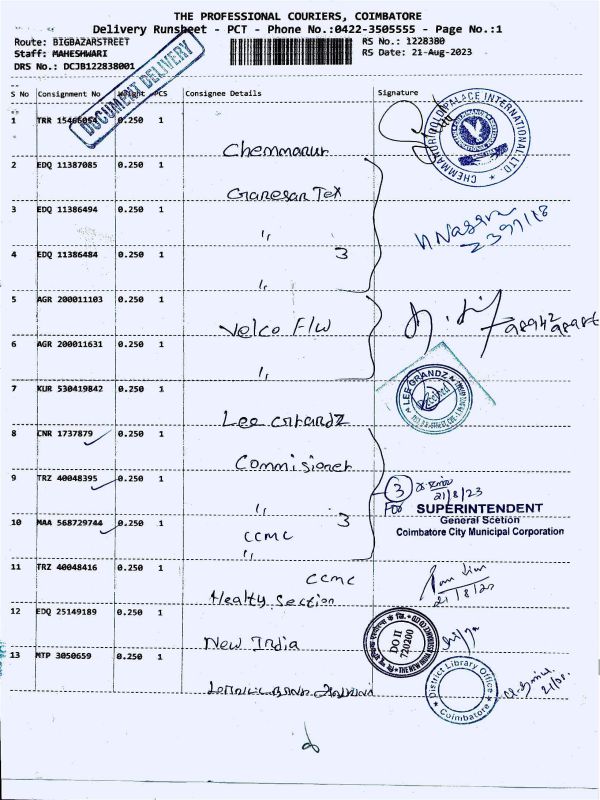 THE PROFESSIONAL COURIERS, COIMBATORE
Delivery Runsheet - PCT - Phone No.:0422-3505555 - Page No.:1
Route: BIGBAZARSTREET
RS No.: 1228380
Staff: MAHESHWARI
RS Date: 21-Aug-2023
DRS No.: DCJB122838001
DOCUMENT DELIVERY
S No Consignment No Weight PCS Consignee Details Signature
1 TRR 0.250 1
Chemmanur
CHEMMANUR GOLD PALACE INTERNATIONAL LTD.
2 EDQ 11387085 0.250 1
Ganesar Tex
3 EDQ 11386494 0.250 1
"
4 EDQ 11386484 0.250 1 3
"
5 AGR 200011103 0.250 1
Velco F/W
6 AGR 200011631 0.250 1
"
7 KUR 530419842 0.250 1
LEE GRANDZ
Received
Lee Grandz
8 CNR 1737879 0.250 1
Commisioner
9 TRZ 40048395 0.250 1
"
3
21/8/23
For SUPERINTENDENT
General Scetion
Coimbatore City Municipal Corporation
10 MAA 568729744 0.250 1 3
CCMC
"
11 TRZ 40048416 0.250 1
CCMC
Healty Section
21/8/23
12 EDQ 25149189 0.250 1
New India
DO II
720200
13 MTP 3050659 0.250 1
District Library Office
Coimbatore